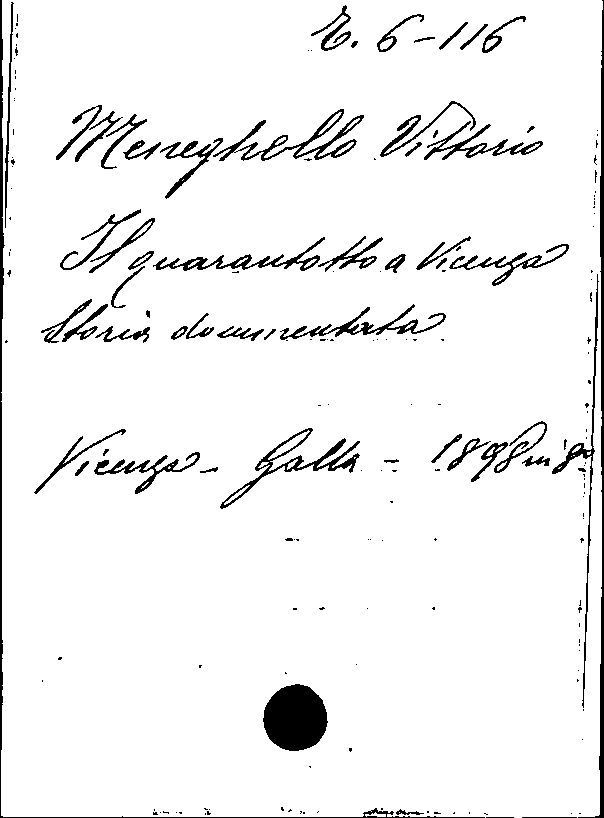 E. 6-116
Meneghello Vittorio
Il quarantotto a Vicenza
Storia documentata
Vicenza - Galla - 1898 in 8º